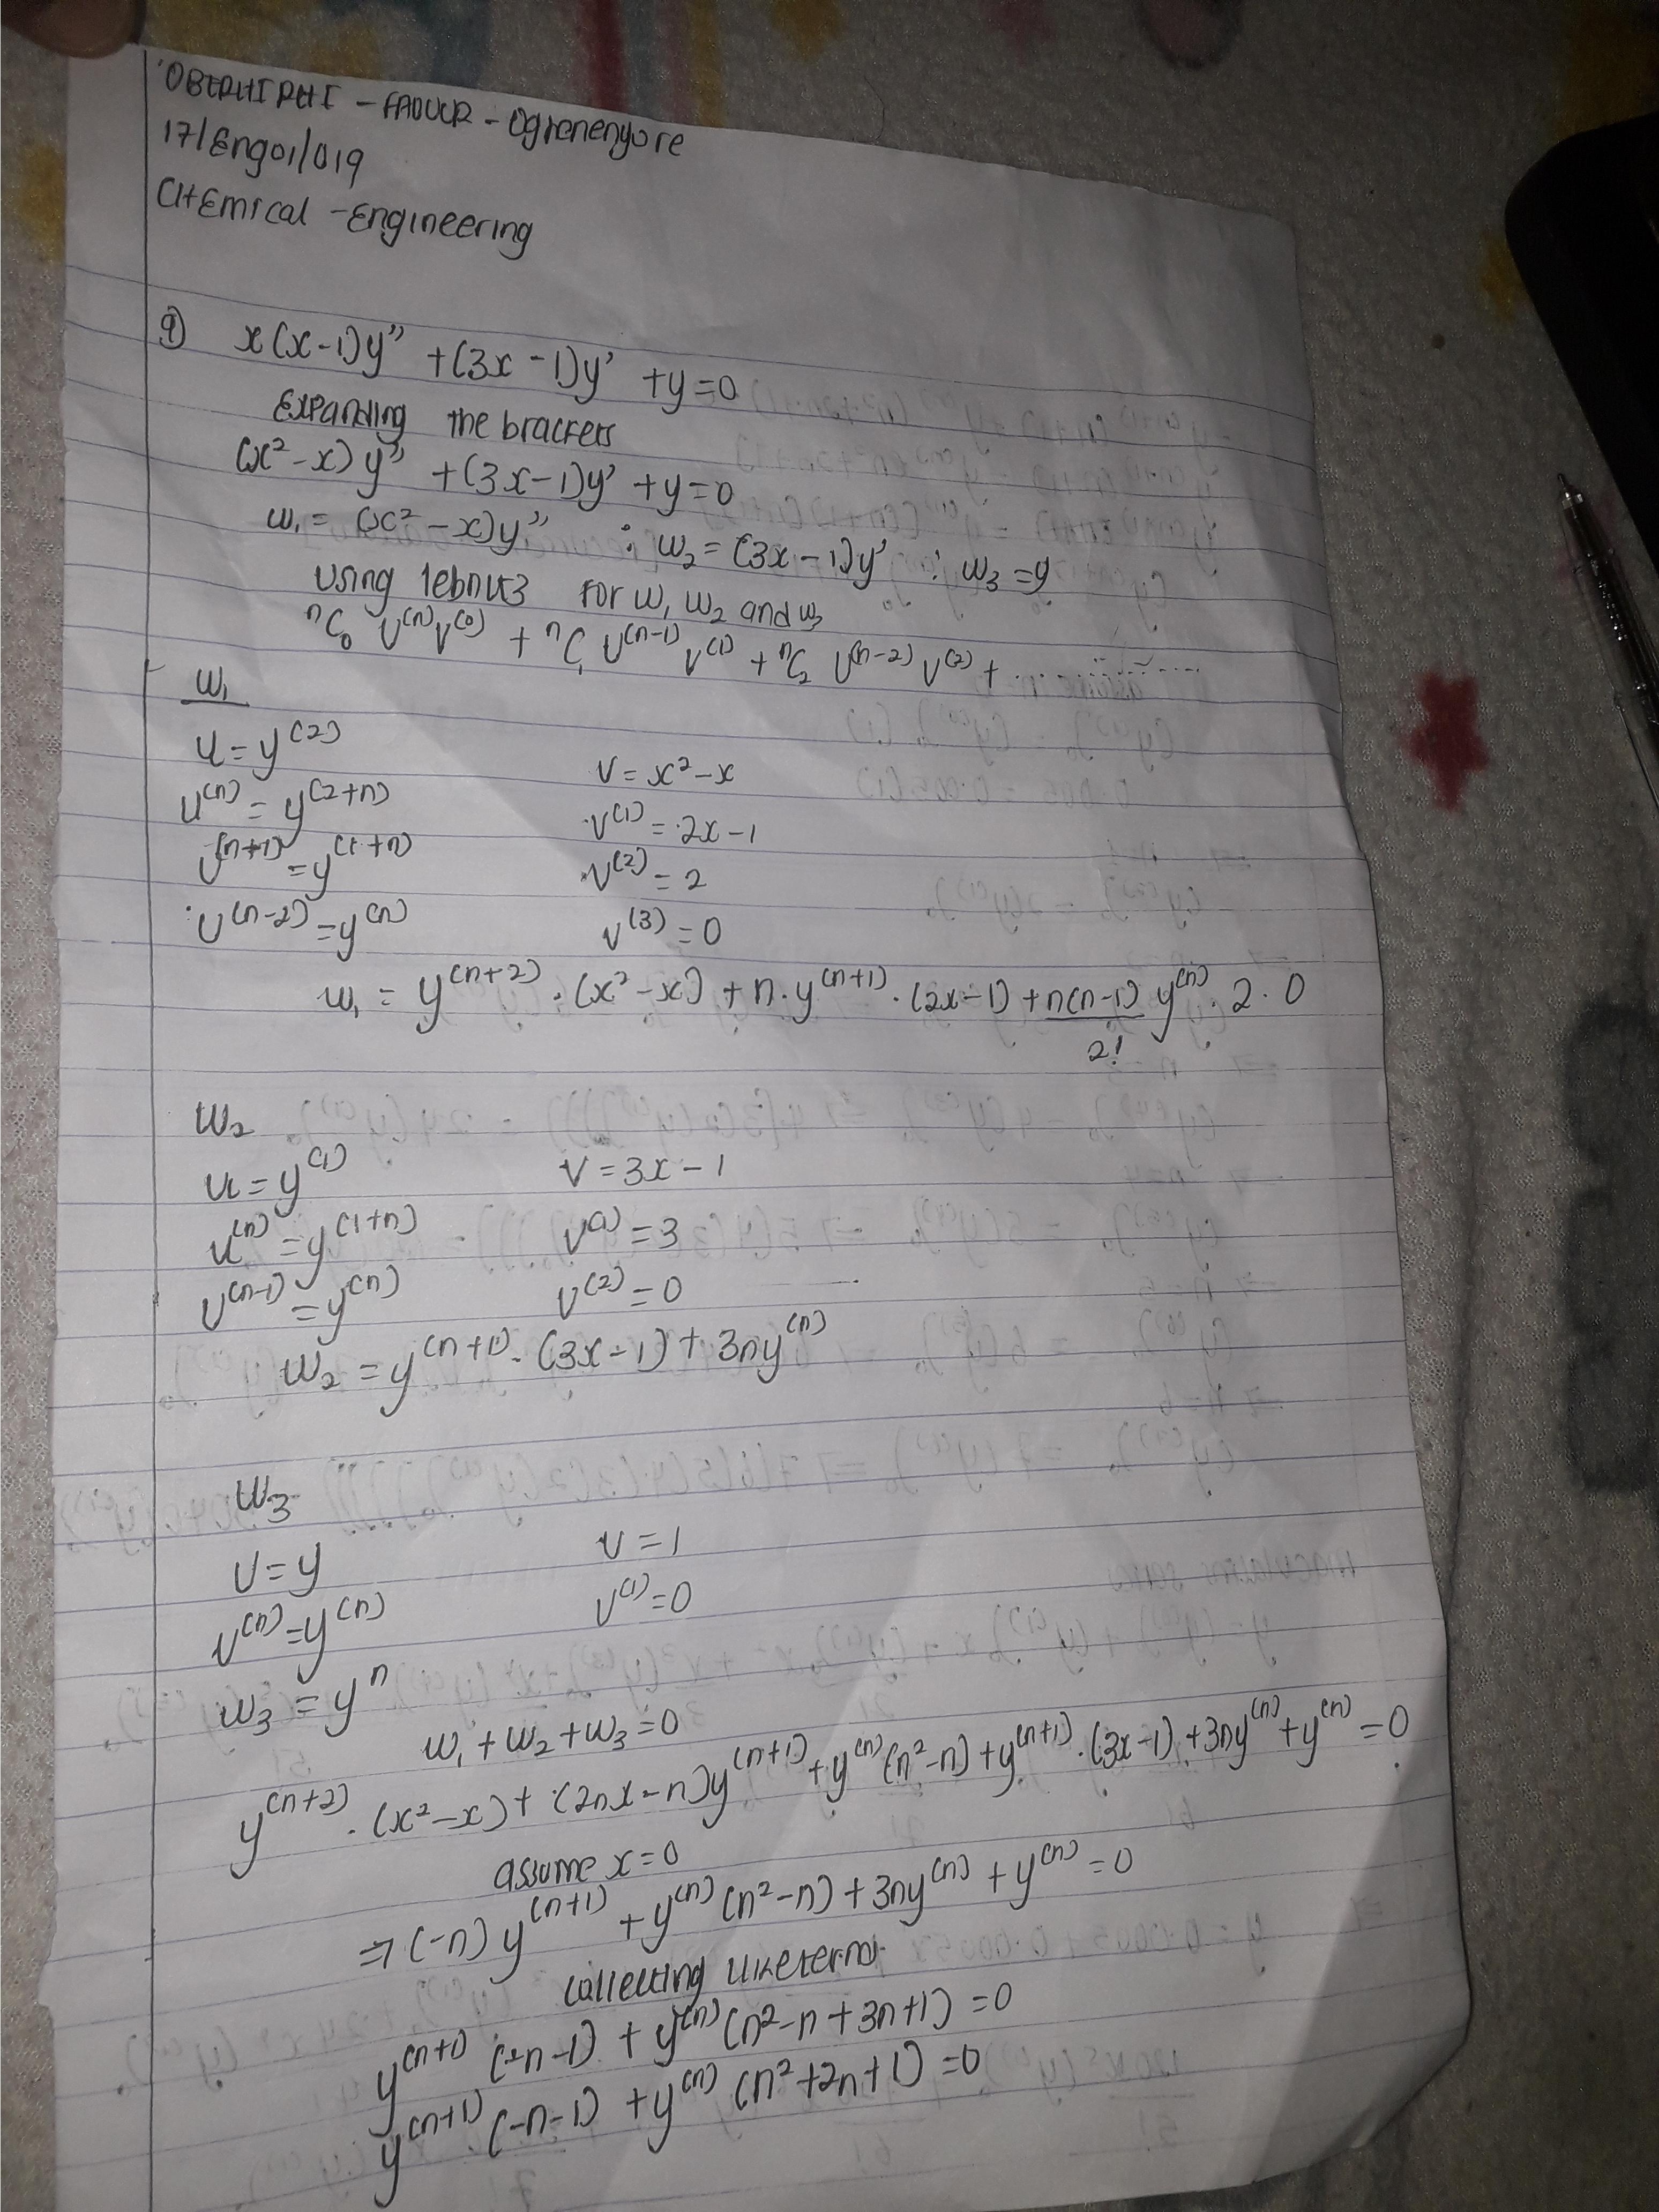 OBERHIRHI - FADUCR - Oghenenyore
17/Eng01/019
CHEmical - Engineering
9) x(x-1)y'' + (3x-1)y' + y = 0
Expanding the brackets
(x² - x)y'' + (3x-1)y' + y = 0
w₁ = (x² - x)y'' ; w₂ = (3x-1)y' ; w₃ = y
Using lebnitz for w₁ w₂ and w₃
ⁿC₀ U⁽ⁿ⁾V⁽⁰⁾ + ⁿC₁ U⁽ⁿ⁻¹⁾ V⁽¹⁾ + ⁿC₂ U⁽ⁿ⁻²⁾ V⁽²⁾ + ...........
w₁
U = y⁽²⁾ V = x² - x
U⁽ⁿ⁾ = y⁽²⁺ⁿ⁾ V⁽¹⁾ = 2x - 1
U⁽ⁿ⁺¹⁾ = y⁽¹⁺ⁿ⁾ V⁽²⁾ = 2
U⁽ⁿ⁻²⁾ = y⁽ⁿ⁾ V⁽³⁾ = 0
w₁ = y⁽ⁿ⁺²⁾ · (x² - x) + n · y⁽ⁿ⁺¹⁾ · (2x-1) + n(n-1)/2! y⁽ⁿ⁾ · 2 · 0
w₂
U = y⁽¹⁾ V = 3x - 1
U⁽ⁿ⁾ = y⁽¹⁺ⁿ⁾ V⁽¹⁾ = 3
U⁽ⁿ⁻¹⁾ = y⁽ⁿ⁾ V⁽²⁾ = 0
w₂ = y⁽ⁿ⁺¹⁾ · (3x-1) + 3ny⁽ⁿ⁾
w₃
U = y V = 1
U⁽ⁿ⁾ = y⁽ⁿ⁾ V⁽¹⁾ = 0
w₃ = yⁿ
w₁ + w₂ + w₃ = 0
y⁽ⁿ⁺²⁾ · (x² - x) + (2nx - n)y⁽ⁿ⁺¹⁾ + y⁽ⁿ⁾(n² - n) + y⁽ⁿ⁺¹⁾ · (3x-1) + 3ny⁽ⁿ⁾ + y⁽ⁿ⁾ = 0
assume x = 0
⇒ (-n) y⁽ⁿ⁺¹⁾ + y⁽ⁿ⁾(n² - n) + 3ny⁽ⁿ⁾ + y⁽ⁿ⁾ = 0
Collecting like terms
y⁽ⁿ⁺¹⁾ (-n-1) + y⁽ⁿ⁾(n² - n + 3n + 1) = 0
y⁽ⁿ⁺¹⁾ (-n-1) + y⁽ⁿ⁾ (n² + 2n + 1) = 0